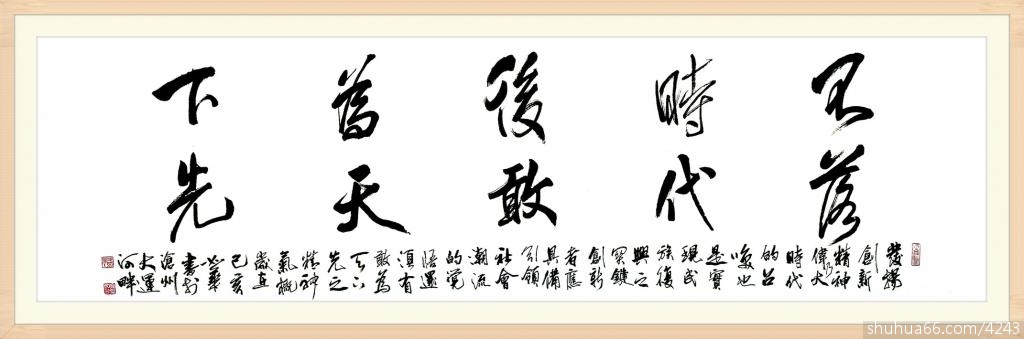 不落
時代
後敢
為天
下先
發揚
創新
精神
偉大
時代
的召
喚也
是實
現民
族復
興之
関鍵
創新
者應
具備
引領
社會
潮流
的覺
悟還
須有
敢為
天下
先之
精神
氣概
歲直
己亥
華
書於
滄州
大運
河畔
shuhua66.com/4243